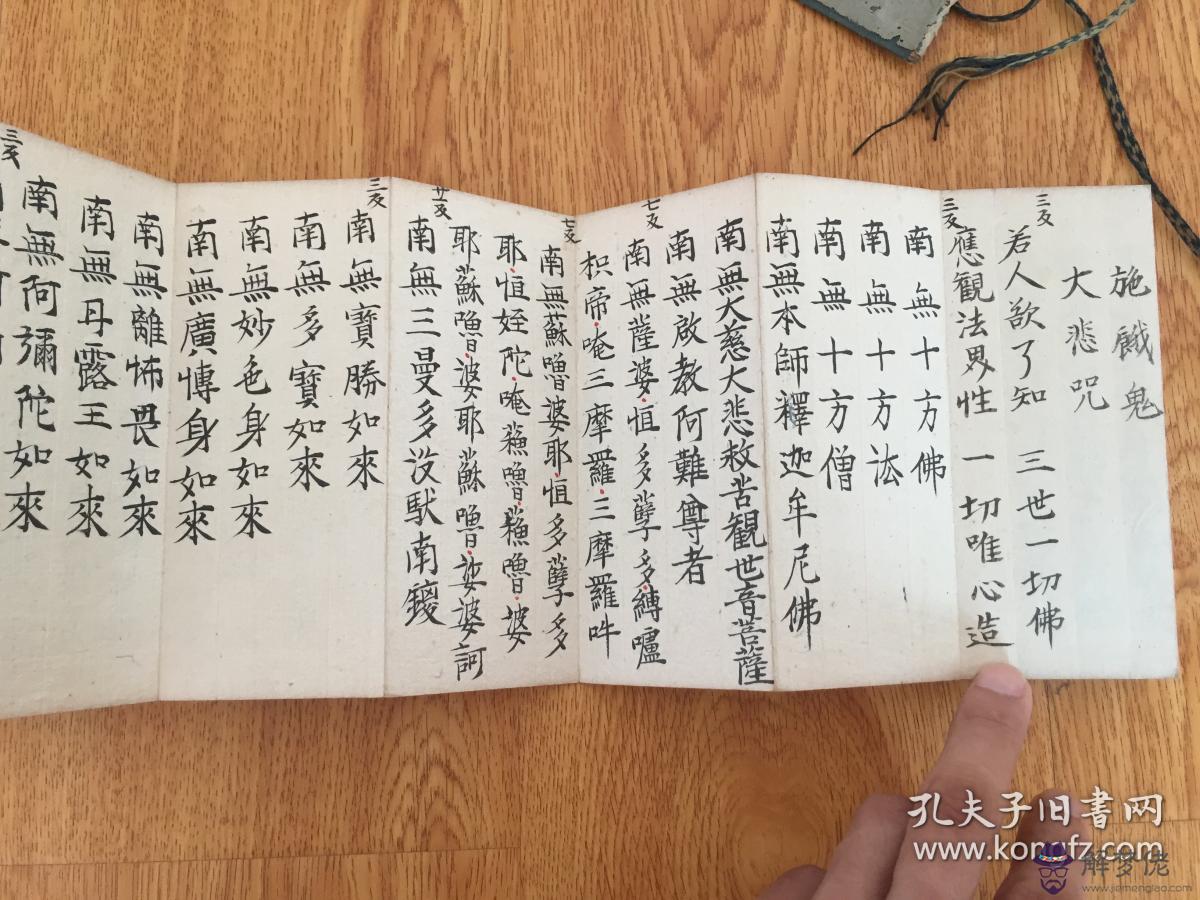 施餓鬼
大悲咒
三反
若人欲了知 三世一切佛
三反
應観法界性 一切唯心造
南無十方佛
南無十方法
南無十方僧
南無本師釋迦牟尼佛
南無大慈大悲救苦観世音菩薩
南無啟教阿難尊者
七反
南無薩婆恒多孽多縛嚧
枳帝唵三摩羅三摩羅吽
七反
南無蘇嚕婆耶恒多孽多
耶恒姪陀唵蘓嚕蘓嚕婆
耶蘇嚕婆耶蘇嚕娑婆訶
廿一反
南無三曼多没馱南鑁
三反
南無寶勝如來
南無多寶如來
南無妙色身如來
南無廣博身如來
南無離怖畏如來
南無甘露王如來
南無阿彌陀如來
三反
孔夫子旧书网
www.kongfz.com
解梦佬
www.jiemenglao.com